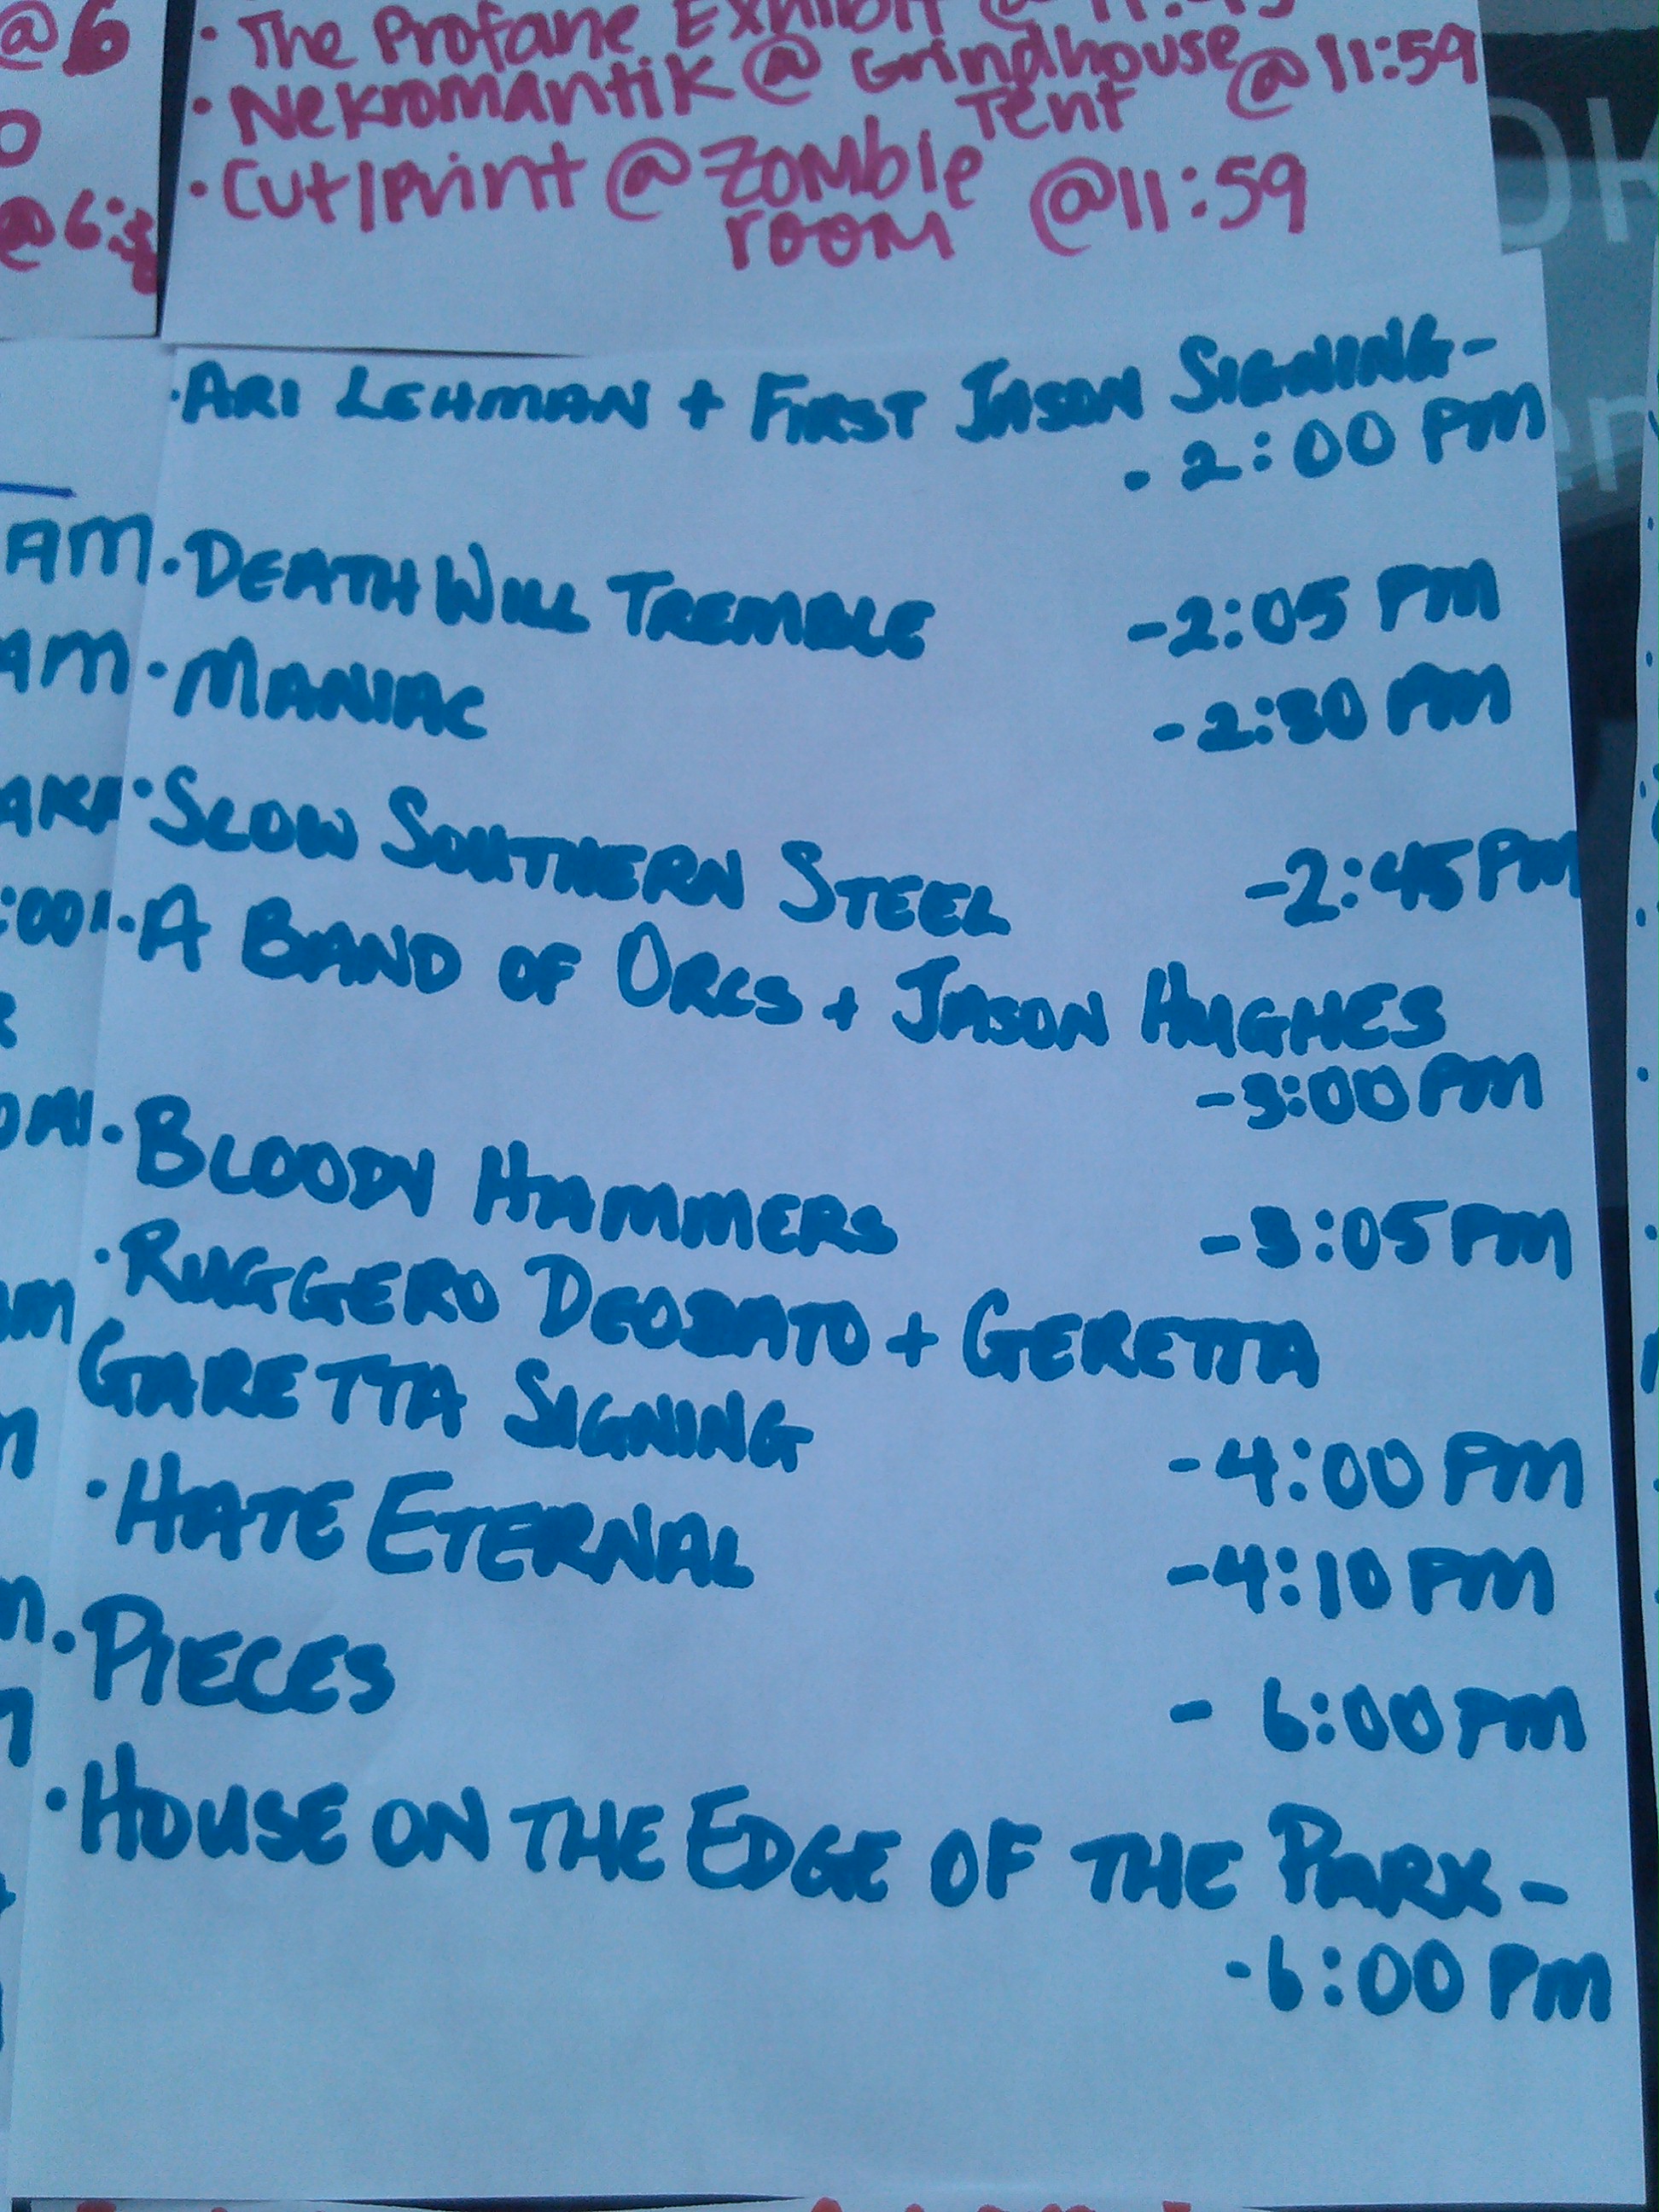 @6
• The Profane Exhibit @ 11:45
• Nekromantik @ Grindhouse Tent @ 11:59
@6:3
• Cut/Print @ Zombie room @11:59
• ARI LEHMAN + FIRST JASON SIGNING -
- 2:00 PM
AM
• DEATH WILL TREMBLE -2:05 PM
AM
• MANIAC -2:30 PM
• SLOW SOUTHERN STEEL -2:45 PM
• A BAND OF ORCS + JASON HUGHES
-3:00 PM
• BLOODY HAMMERS -3:05 PM
• RUGGERO DEODATO + GERETTA
GARETTA SIGNING -4:00 PM
• HATE ETERNAL -4:10 PM
• PIECES - 6:00 PM
• HOUSE ON THE EDGE OF THE PARK -
-6:00 PM